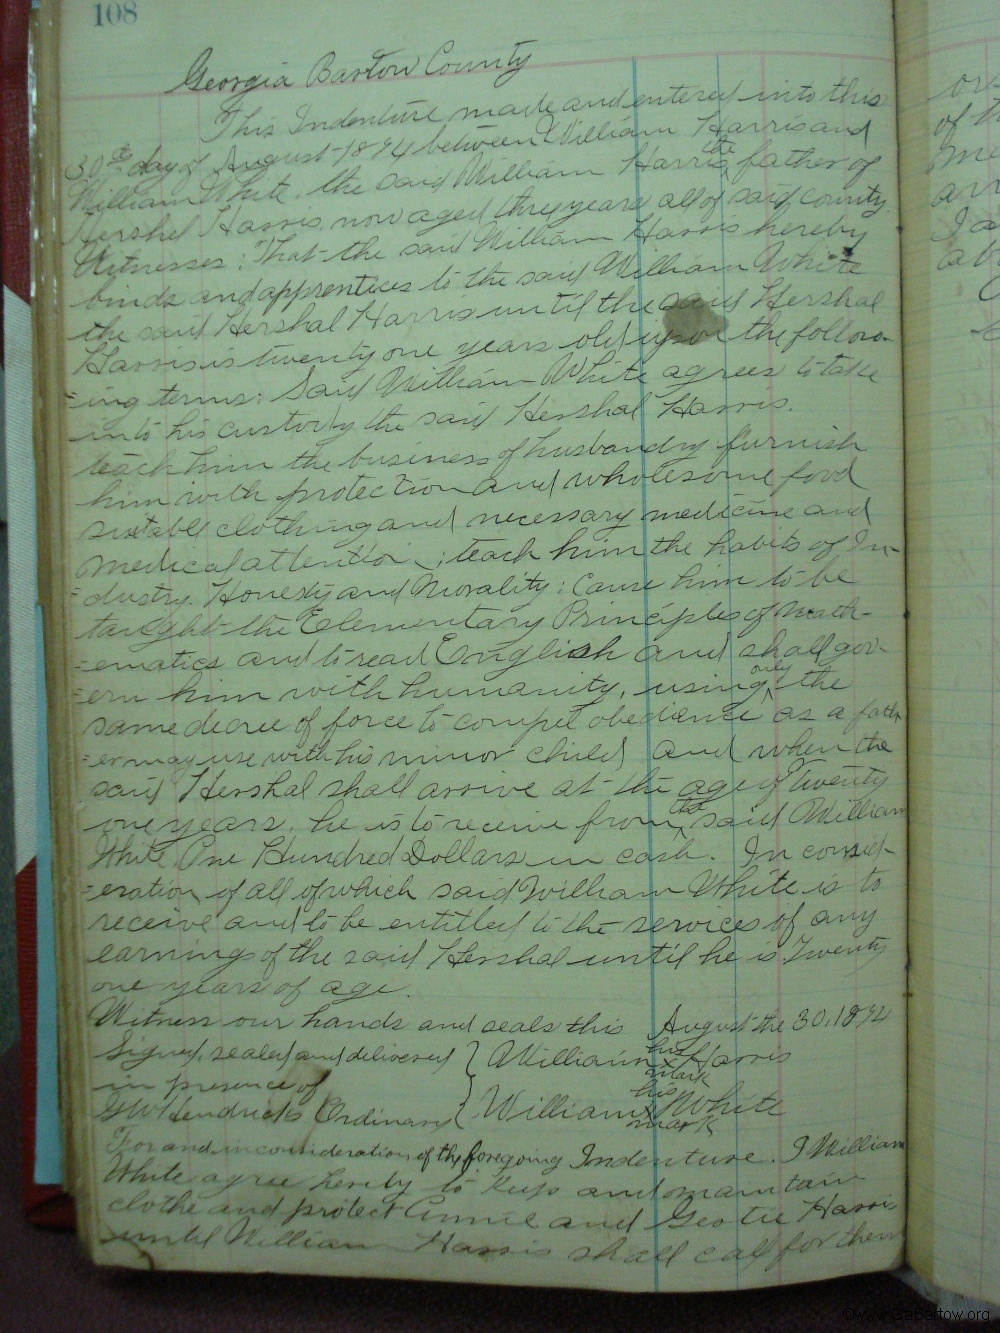 108
Georgia Bartow County
This Indenture made and entered into this
30th day of August 1894 between William Harris and
William White. the said William Harris, the father of
Hershel Harris, now aged three years all of said county.
Witnesses: That the said William Harris hereby
binds and apprentices to the said William White
the said Hershal Harris until the said Hershal
Harris is twenty one years old upon the follow-
=ing terms: Said William White agrees to take
into his custody the said Hershal Harris.
teach him the business of husbandry furnish
him with protection and wholesome food
suitable clothing and necessary medicine and
medical attention; teach him the habits of In-
=dustry. Honesty and Morality: Cause him to be
taught the Elementary Principles of Math-
=ematics and to read English and shall gov-
=ern him with humanity, using only the
same decree of force to compel obediance as a fath
=er may use with his minor child and when the
said Hershal shall arrive at the age of Twenty
one years, he is to receive from the said William
White One Hundred Dollars in cash. In consid-
=eration of all of which said William White is to
receive and to be entitled to the services of any
earnings of the said Hershal until he is Twenty
one years of age.
Witness our hands and seals this August the 30, 1894
Signed, sealed and delivered } William his x mark Harris
in presence of
GW Hendricks Ordinary { William his x mark White
For and in consideration of the foregoing Indenture. I William
White agree hereby to keep and maintain
clothe and protect Annie and Harris
until William Harris shall call for them
or
of
©www.GaBartow.org